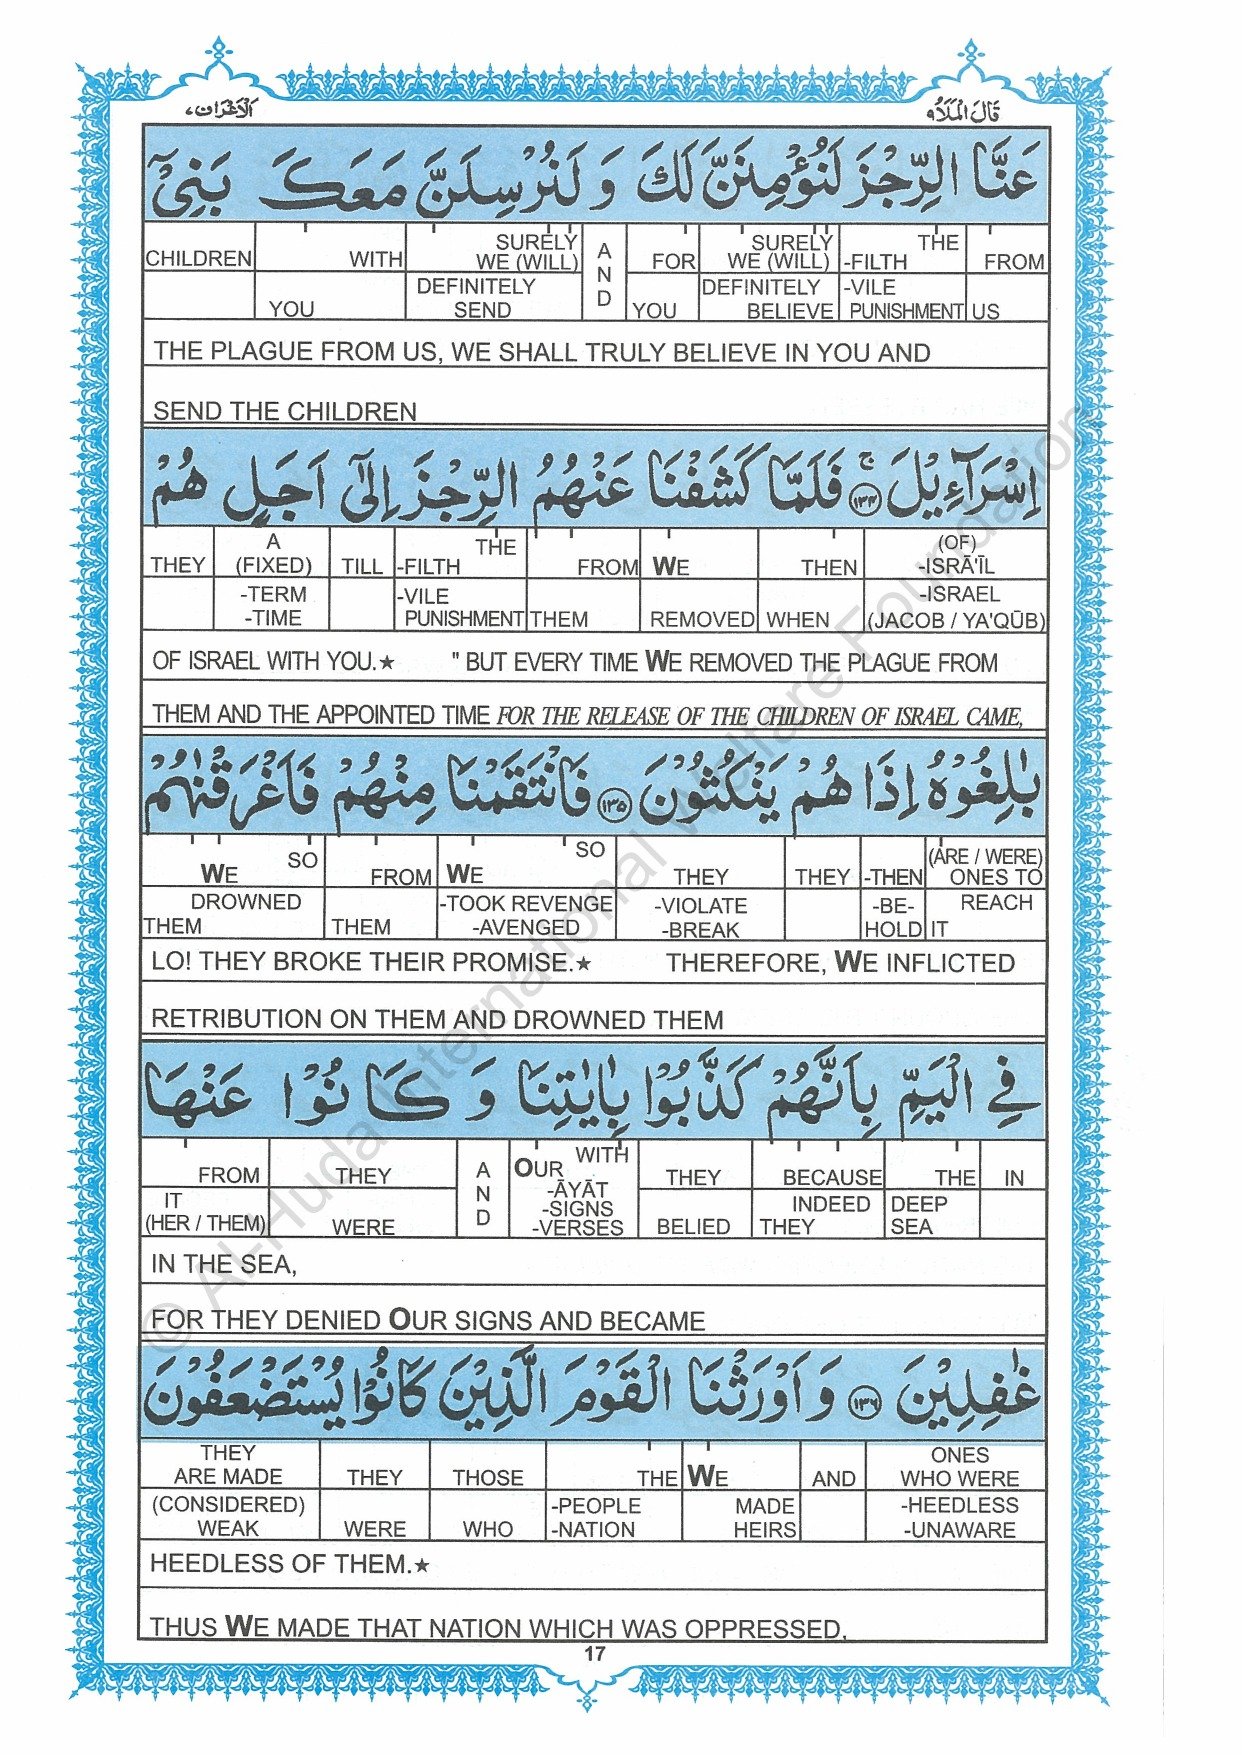 قَالَ الْمَلَاُ ۹
الْاَعْرَاف ۷
عَنَّا الرِّجْزَ لَنُؤْمِنَنَّ لَكَ وَ لَنُرْسِلَنَّ مَعَكَ بَنِيْۤ
CHILDREN WITH SURELY WE (WILL) AND FOR SURELY WE (WILL) THE -FILTH FROM
YOU DEFINITELY SEND YOU DEFINITELY BELIEVE -VILE PUNISHMENT US
THE PLAGUE FROM US, WE SHALL TRULY BELIEVE IN YOU AND
SEND THE CHILDREN
اِسْرَآءِيْلَ ۚ ﴿۱۳۴﴾ فَلَمَّا كَشَفْنَا عَنْهُمُ الرِّجْزَ اِلٰۤى اَجَلٍ هُمْ
THEY A (FIXED) TILL THE -FILTH FROM WE THEN (OF) -ISRĀ'ĪL
-TERM -TIME -VILE PUNISHMENT THEM REMOVED WHEN -ISRAEL (JACOB / YA'QŪB)
OF ISRAEL WITH YOU.★ " BUT EVERY TIME WE REMOVED THE PLAGUE FROM
THEM AND THE APPOINTED TIME FOR THE RELEASE OF THE CHILDREN OF ISRAEL CAME,
بٰلِغُوْهُ اِذَا هُمْ يَنْكُثُوْنَ ﴿۱۳۵﴾ فَانْتَقَمْنَا مِنْهُمْ فَاَغْرَقْنٰهُمْ
WE SO FROM WE SO THEY THEY -THEN (ARE / WERE) ONES TO
DROWNED THEM THEM -TOOK REVENGE -AVENGED -VIOLATE -BREAK -BE- HOLD REACH IT
LO! THEY BROKE THEIR PROMISE.★ THEREFORE, WE INFLICTED
RETRIBUTION ON THEM AND DROWNED THEM
فِي الْيَمِّ بِاَنَّهُمْ كَذَّبُوْا بِاٰيٰتِنَا وَ كَانُوْا عَنْهَا
FROM THEY AND OUR WITH -ĀYĀT -SIGNS -VERSES THEY BECAUSE THE IN
IT (HER / THEM) WERE BELIED INDEED THEY DEEP SEA
IN THE SEA,
FOR THEY DENIED OUR SIGNS AND BECAME
غٰفِلِيْنَ ﴿۱۳۶﴾ وَ اَوْرَثْنَا الْقَوْمَ الَّذِيْنَ كَانُوْا يُسْتَضْعَفُوْنَ
THEY ARE MADE THEY THOSE THE WE AND ONES WHO WERE
(CONSIDERED) WEAK WERE WHO -PEOPLE -NATION MADE HEIRS -HEEDLESS -UNAWARE
HEEDLESS OF THEM.★
THUS WE MADE THAT NATION WHICH WAS OPPRESSED,
17
© Al-Huda International Welfare Foundation